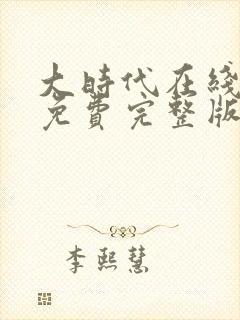 大時代在綫
免費完整版
李熙慧